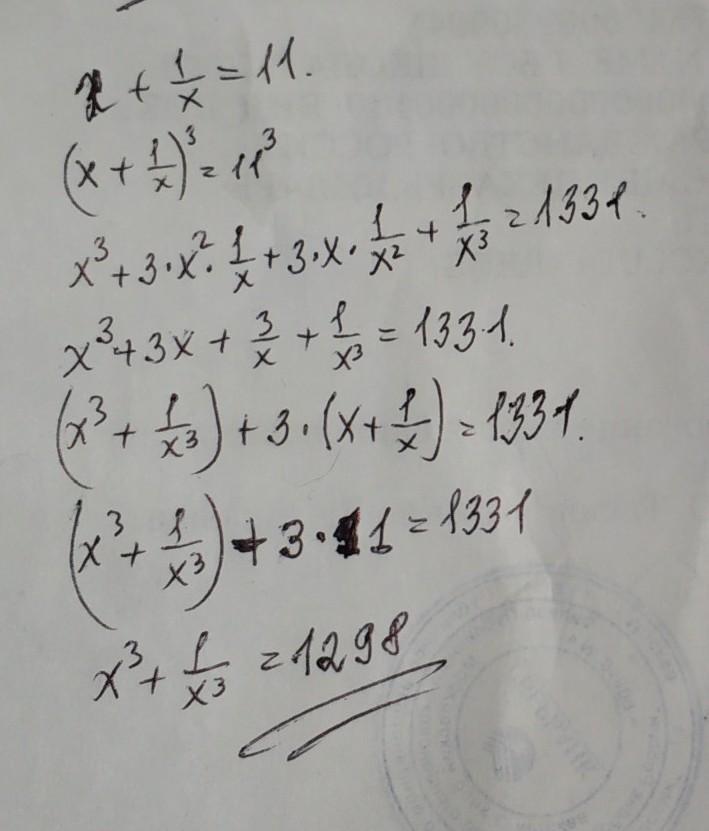 x + 1/x = 11.
(x + 1/x)³ = 11³
x³ + 3·x²·1/x + 3·x·1/x² + 1/x³ = 1331.
x³ + 3x + 3/x + 1/x³ = 1331.
(x³ + 1/x³) + 3·(x + 1/x) = 1331.
(x³ + 1/x³) + 3·11 = 1331
x³ + 1/x³ = 1298